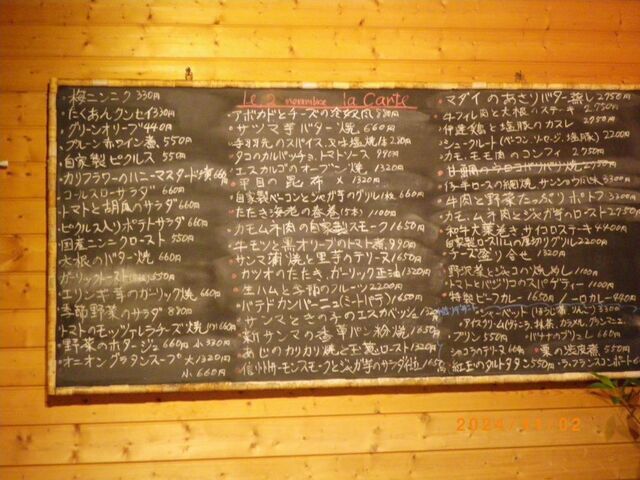 Le 2 novembre la Carte
・梅ニンニク 330円
・たくあんクンセイ 330円
・グリーンオリーブ 440円
・プルーン赤ワイン煮 550円
・自家製ピクルス 550円
・カリフラワーのハニーマスタード 660円
・コールスローサラダ 660円
・トマトと胡瓜のサラダ 660円
・ピクルス入りポテトサラダ 660円
・国産ニンニクロースト 550円
・大根のバター焼 660円
・ガーリックトースト 550円
・エリンギ茸のガーリック焼 660円
・季節野菜のサラダ 880円
・トマトのモッツァレラチーズ焼
・野菜のポタージュ 660円 小 330円
・オニオングラタンスープ 大 1320円
小 660円
アボカドとチーズの
・サツマ芋バター焼 660円
・タコのカルパッチョ、トマトソース 990円
・エスカルゴのオーブン焼 1320円
・平目の昆布〆 1320円
・自家製ベーコンとジャガ芋のグリル
・たたき海老の春巻(5本) 1100円
・カモムネ肉の自家製スモーク 1650円
・牛モツと黒オリーブのトマト煮 990円
・サンマ燻焼と里芋のテリーヌ 1650円
・カツオのたたき、ガーリック正油 1320円
・生ハムと季節のフルーツ 2200円
・パテドカンパーニュ(ミートパテ) 1650円
・サンマときの子のエスカベッシュ 1320円
・新サンマの香草パン粉焼 1650円
・あじのカリカリ焼と玉葱ロースト 1320円
・信州サーモンスモークとジャガ芋のサラダ仕立 1650円
・マダイのあさりバター蒸し 2,750円
・牛フィレ肉と大根のステーキ 2,750円
・伊達鶏と塩豚のカスレ 2950円
・シュークルート(ベーコン、ソーセージ、塩豚) 2200円
・カモ、モモ肉のコンフィ 2,750円
・牛肉と野菜たっぷりポトフ 3300円
・カモ、ムネ肉とジャガ芋のロースト 2750円
・和牛大葉巻き サイコロステーキ 4400円
・自家製ロースハムの厚切りグリル 2200円
・チーズ盛り合せ 1320円
・野沢菜とジャコの焼めし 1100円
・トマトとバジリコのスパゲティー 1100円
・特製ビーフカレー 1650円 ・ノーロカレー 4400円
・シャーベット(ほうじ茶、りんご) 330円
・アイスクリーム(ヴァニラ、抹茶、カラメル、グランマニエ)
・プリン 550円 ・バナナのブリュレ 660円
・ショコラのテリーヌ 660円 ・栗の渋皮煮 550円
・紅玉のタルトタタン 550円
2024/11/02